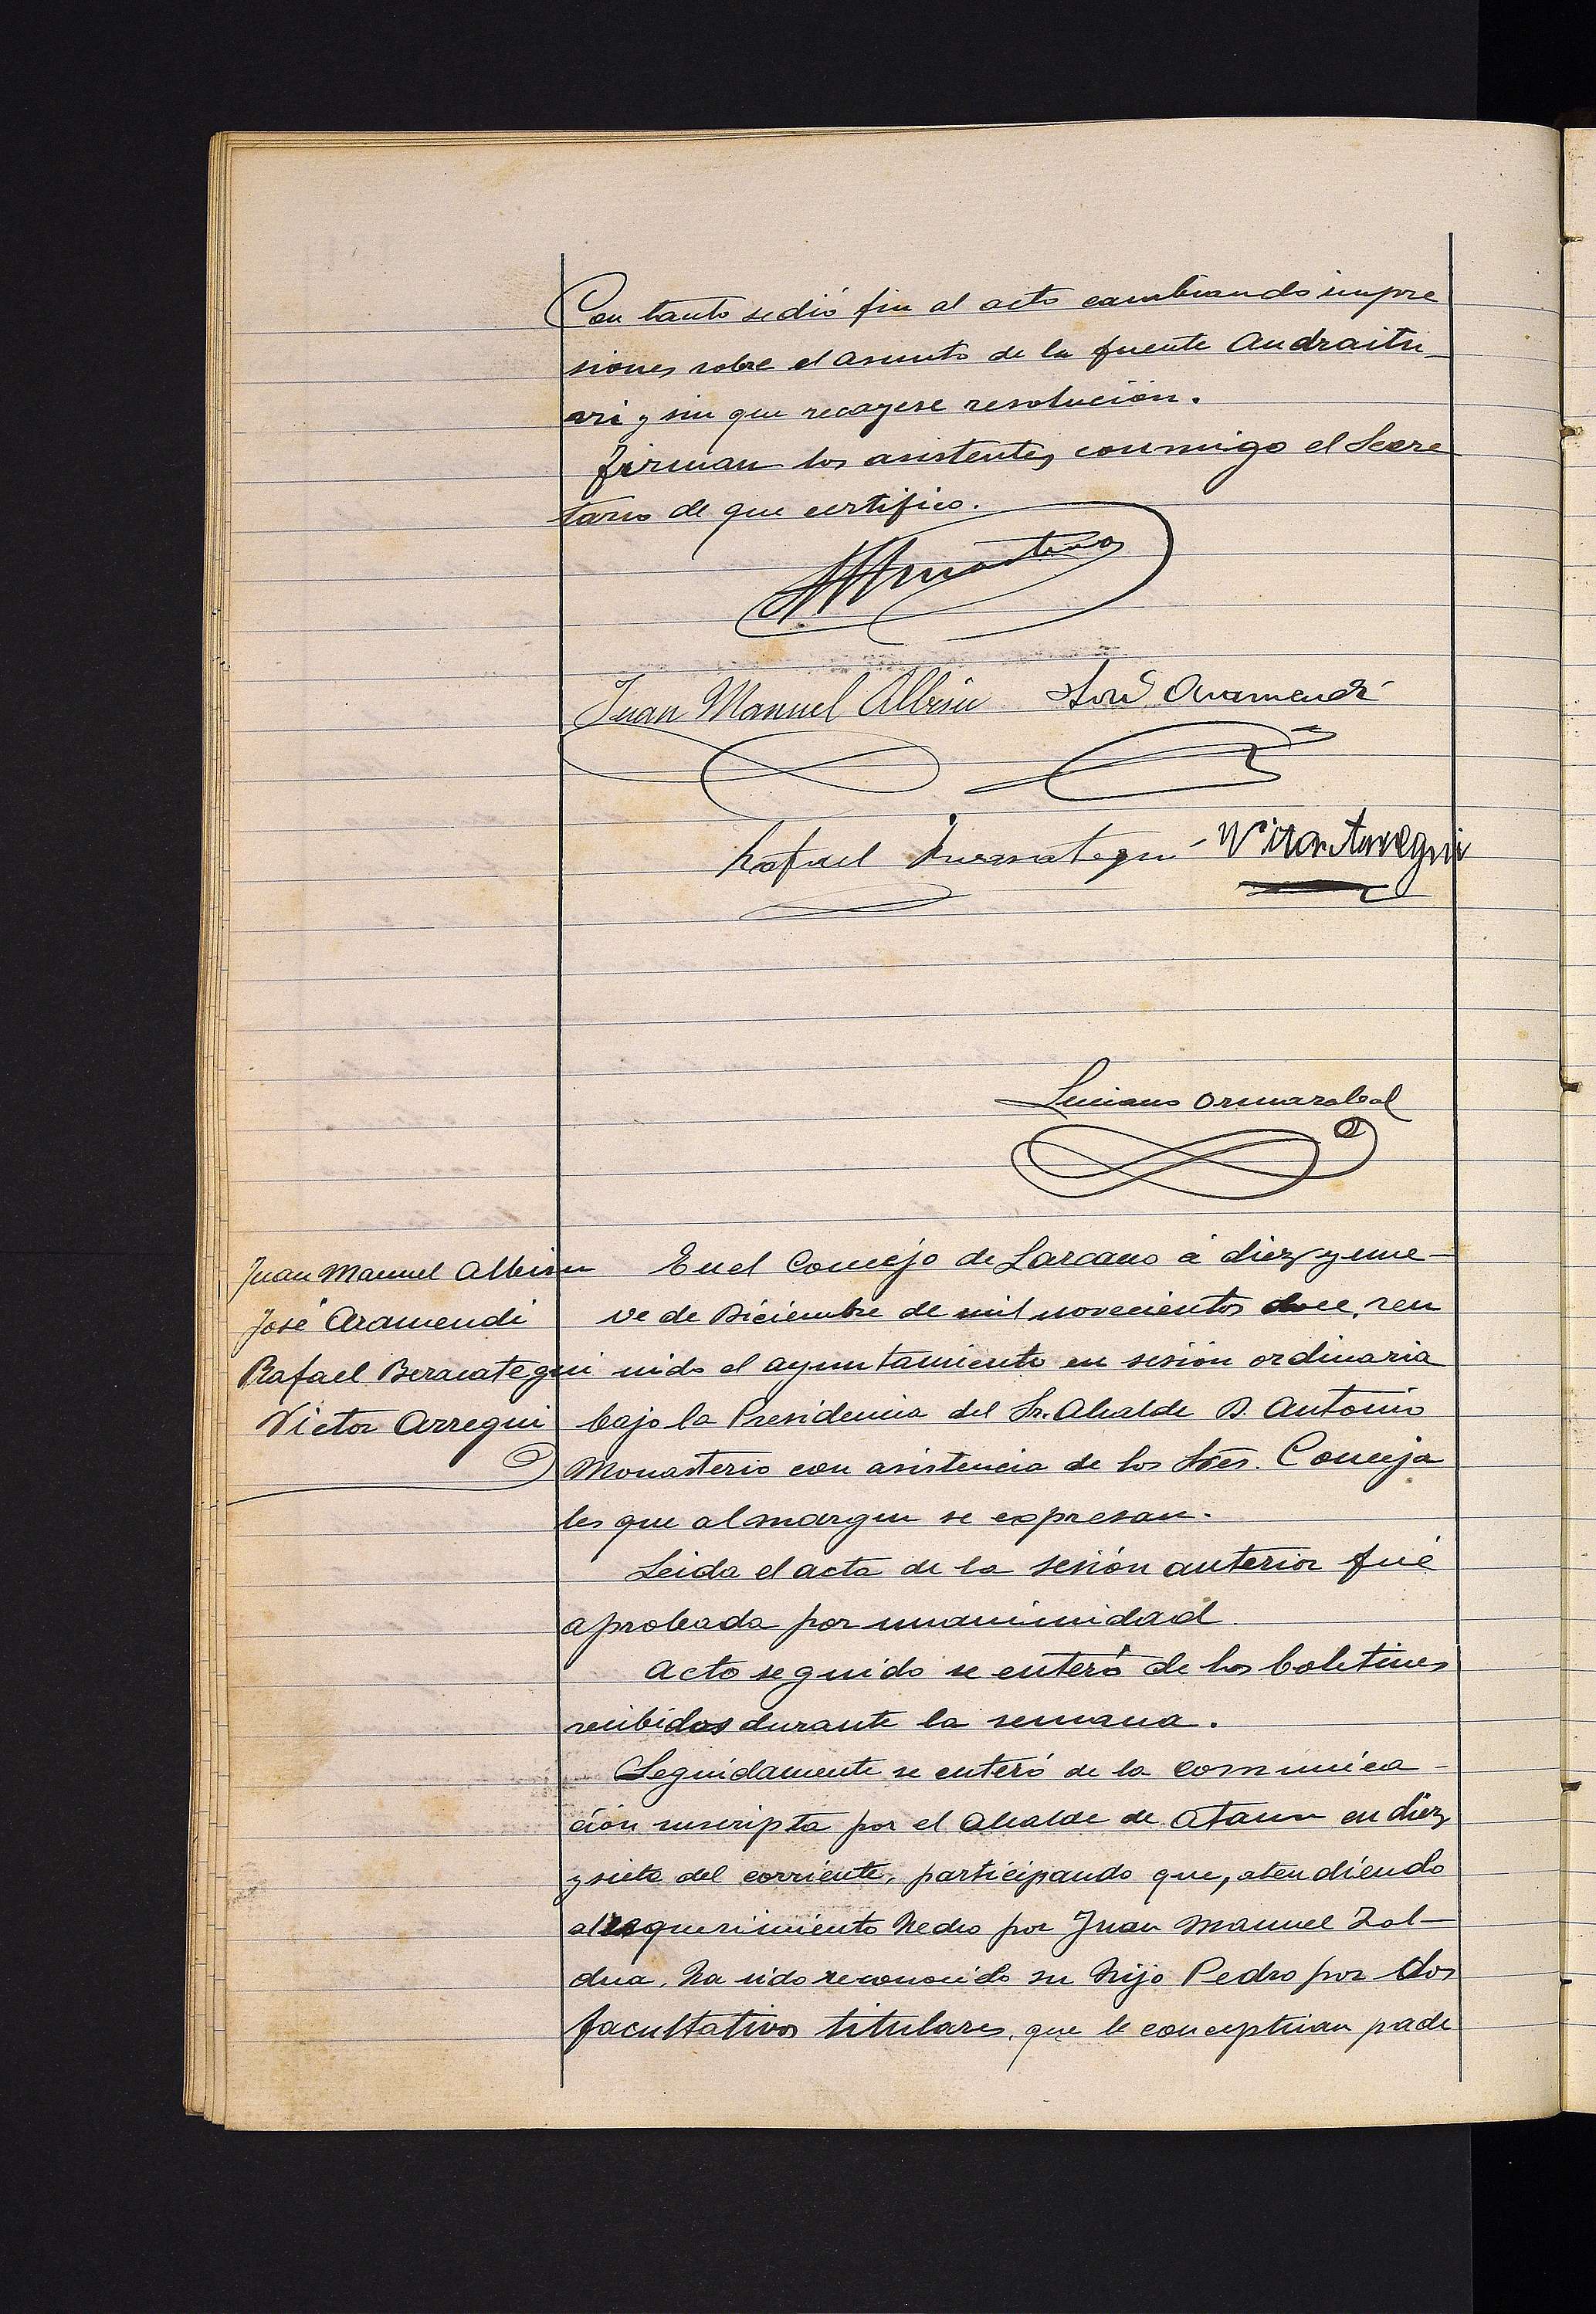 Con tanto se dió fin al acto cambiando impre
siones sobre el asunto de la fuente Andraitu-
ri y sin que recayese resolución.
Firman los asistentes conmigo el Secre
tario de que certifico.
Juan Manuel Albisu José Aramendi
Rafael Berasategui Victor Arregui
Luciano Ormazabal
Juan Manuel Albisu
José Aramendi
Rafael Beracategui
Victor Arregui
En el Concejo de Larcano á diez y nue-
ve de Diciembre de mil novecientos doce, reu
nido el ayuntamiento en sesión ordinaria
bajo la Presidencia del Sr. Alcalde D. Antonio
Monasterio con asistencia de los Sres. Conceja
les que al margen se expresan.
Leida el acta de la sesión anterior fué
aprobada por unanimidad
Acto seguido se enteró de los boletines
recibidos durante la semana.
Seguidamente se enteró de la comunica-
ción suscripta por el Alcalde de Ataun en diez
y siete del corriente, participando que, atendiendo
al requerimiento hecho por Juan Manuel Zal-
dua, ha sido reconocido su hijo Pedro por dos
facultativos titulares, que le conceptuan pade